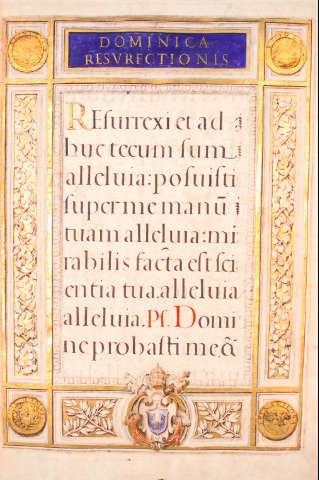 DOMINICA
RESVRECTIONIS
REſurrexi et ad
huc tecum ſum
alleluia: poſuiſti
ſuper me manū
tuam alleluia: mi
rabilis facta eſt ſci
entia tua. alleluia
alleluia. Pſ. Domi
ne probaſti me &